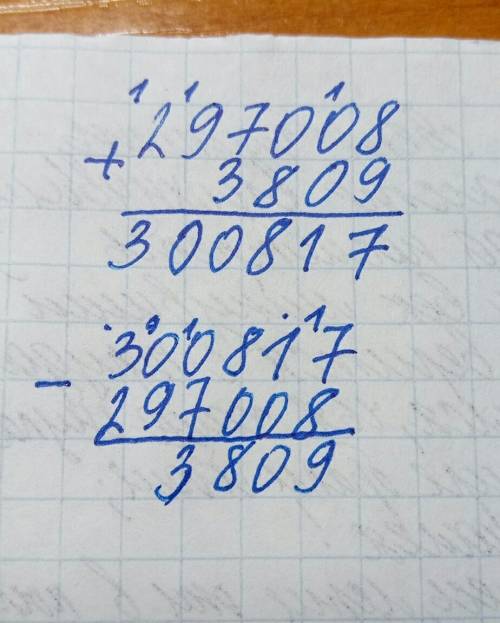 1 1 1
297008
+
3809
300817
. 9 1 . 1
300817
-
297008
3809